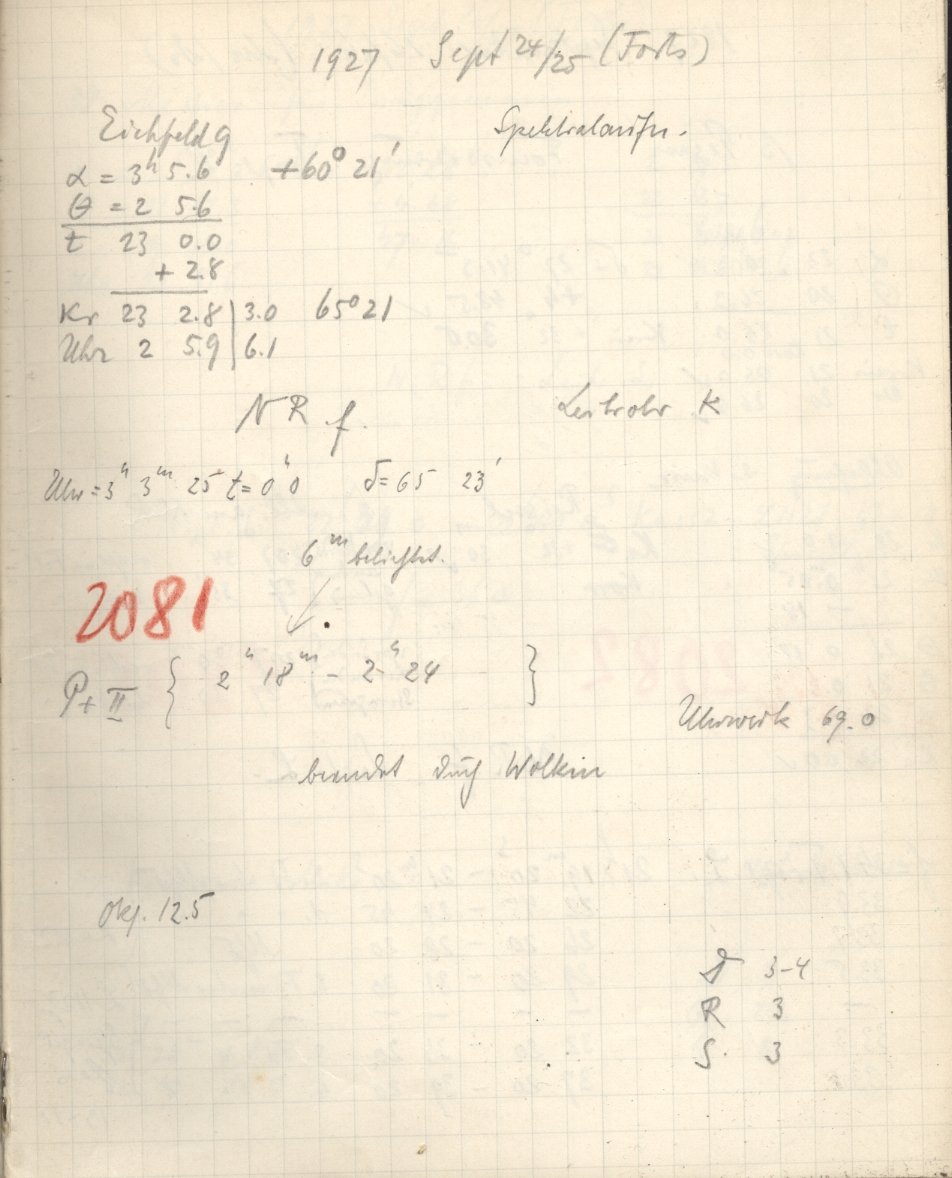 1927 Sept 24/25 (Forts)
Eichfeld 9 Spektralaufn.
α = 3h 5.6 +60° 21'
θ = 2 5.6
t 23 0.0
+ 2.8
Kr 23 2.8 | 3.0 65° 21
Uhr 2 5.9 | 6.1
N R f. Leitrohr K
Uhr = 3h 3m 25 t = 0h 0 δ = 65 23'
6m belichtet.
2081
P + II { 2h 18m - 2h 24 }
Uhrwerk 69.0
beendet durch Wolken
Okf. 12.5
D 3-4
R 3
S. 3